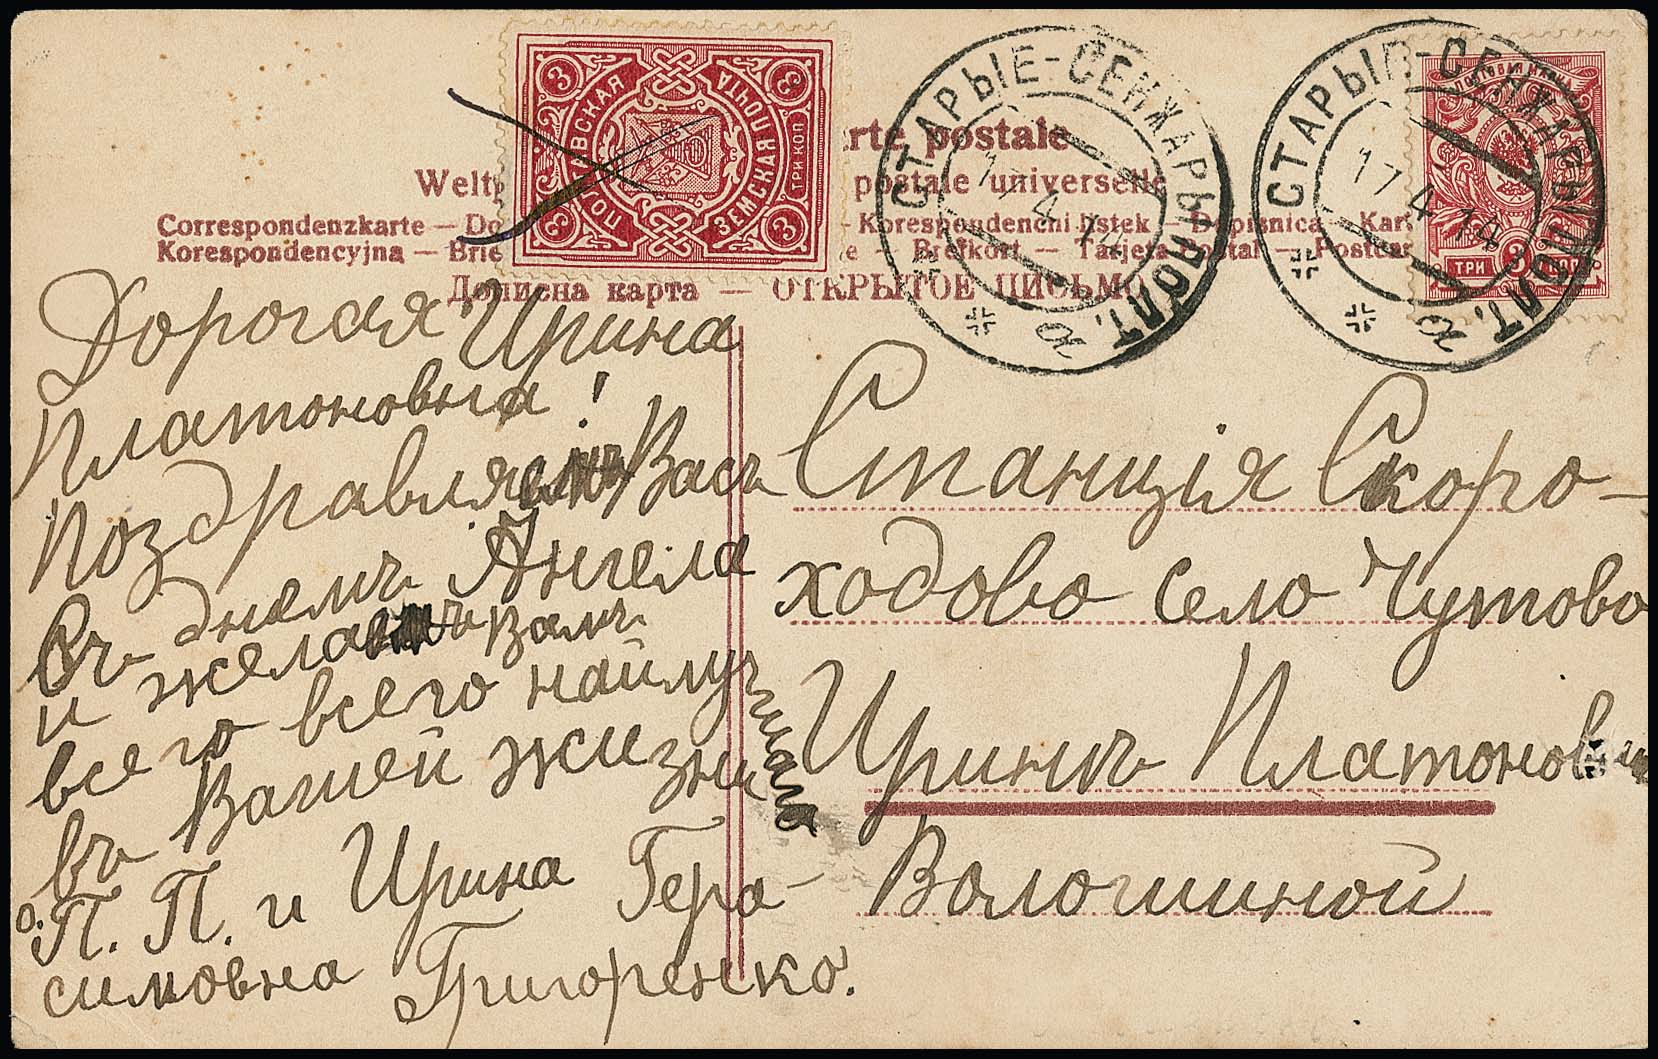 ПОЛТАВСКАЯ ЗЕМСКАЯ ПОЧТА
ТРИ КОП
3 3 3 3
СТАРЫЕ-СЕНЖАРЫ ПОЛТ.
17 4 14
СТАРЫЕ-СЕНЖАРЫ ПОЛТ.
17 4 14
ПОЧТОВАЯ МАРКА
ТРИ 3 КОП.
rte postale
Welt postale universelle
Correspondenzkarte — Do Korespondenčni listek — Dopisnica — Kar
Korespondencyjna — Brie e — Brefkort — Tarjeta postal — Postcar
Дописна карта — ОТКРЫТОЕ ПИСЬМО
Дорогая Ирина
Платоновна!
Поздравляемъ Васъ
Съ днемъ Ангела
и желаемъ вамъ
всего всего найлуч
шаго
въ Вашей жизни
о. П. П. и Ирина Гера-
симовна Григоренко.
Станція Скоро-
ходово село Чутово
Иринѣ Платоновнѣ
Волошиной